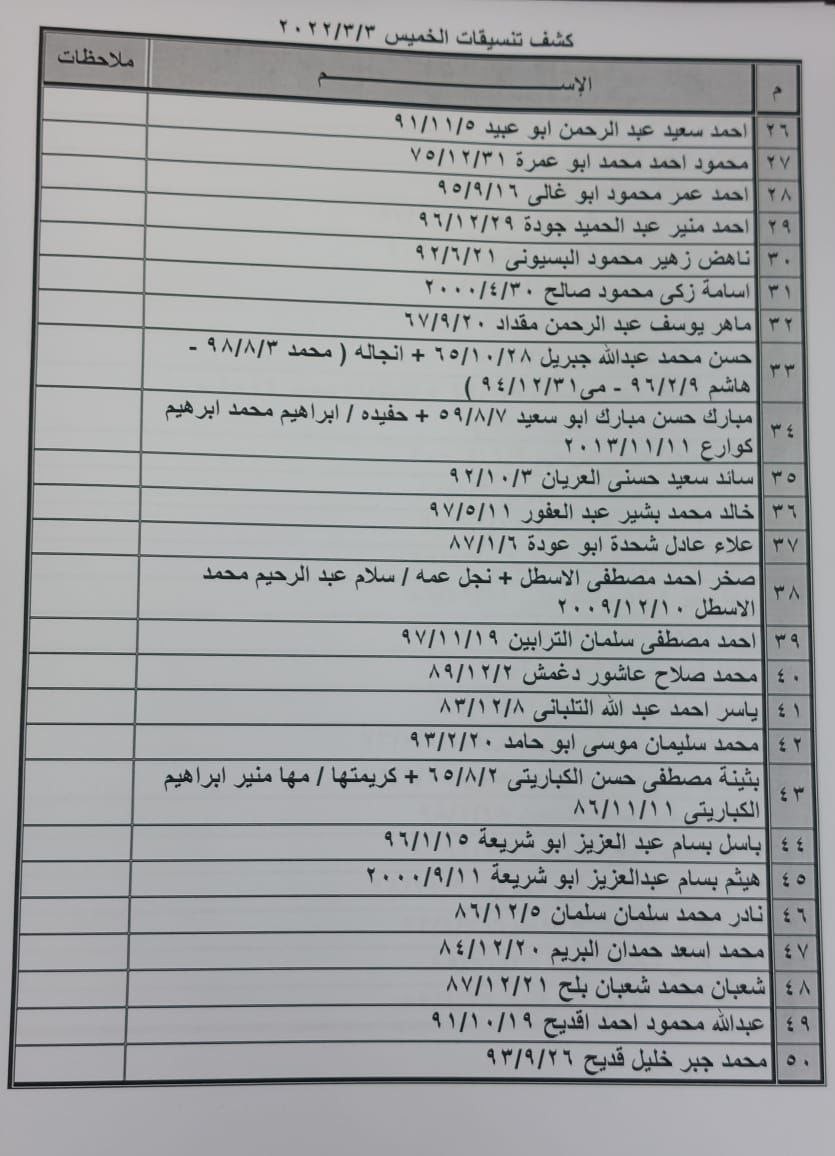 كشف تنسيقات الخميس ٢٠٢٢/٣/٣
م الإســـــــــــم ملاحظات
٢٦ احمد سعيد عبد الرحمن ابو عبيد ٩١/١١/٥
٢٧ محمود احمد محمد ابو عمرة ٧٥/١٢/٣١
٢٨ احمد عمر محمود ابو غالى ٩٥/٩/١٦
٢٩ احمد منير عبد الحميد جودة ٩٦/١٢/٢٩
٣٠ ناهض زهير محمود البسيونى ٩٢/٦/٢١
٣١ اسامة زكى محمود صالح ٢٠٠٠/٤/٣٠
٣٢ ماهر يوسف عبد الرحمن مقداد ٦٧/٩/٢٠
٣٣ حسن محمد عبدالله جبريل ٦٥/١٠/٢٨ + انجاله ( محمد ٩٨/٨/٣ -
هاشم ٩٦/٢/٩ - مى٩٤/١٢/٣١ )
٣٤ مبارك حسن مبارك ابو سعيد ٥٩/٨/٧ + حفيده / ابراهيم محمد ابرهيم
كوارع ٢٠١٣/١١/١١
٣٥ سائد سعيد حسنى العريان ٩٢/١٠/٣
٣٦ خالد محمد بشير عبد العفور ٩٧/٥/١١
٣٧ علاء عادل شحدة ابو عودة ٨٧/١/٦
٣٨ صخر احمد مصطفى الاسطل + نجل عمه / سلام عبد الرحيم محمد
الاسطل ٢٠٠٩/١٢/١٠
٣٩ احمد مصطفى سلمان الترابين ٩٧/١١/١٩
٤٠ محمد صلاح عاشور دغمش ٨٩/١٢/٢
٤١ ياسر احمد عبد الله التلبانى ٨٣/١٢/٨
٤٢ محمد سليمان موسى ابو حامد ٩٣/٢/٢٠
٤٣ بثينة مصطفى حسن الكباريتى ٦٥/٨/٢ + كريمتها / مها منير ابراهيم
الكباريتى ٨٦/١١/١١
٤٤ باسل بسام عبد العزيز ابو شريعة ٩٦/١/١٥
٤٥ هيثم بسام عبدالعزيز ابو شريعة ٢٠٠٠/٩/١١
٤٦ نادر محمد سلمان سلمان ٨٦/١٢/٥
٤٧ محمد اسعد حمدان البريم ٨٤/١٢/٢٠
٤٨ شعبان محمد شعبان بلح ٨٧/١٢/٢١
٤٩ عبدالله محمود احمد اقديح ٩١/١٠/١٩
٥٠ محمد جبر خليل قديح ٩٣/٩/٢٦